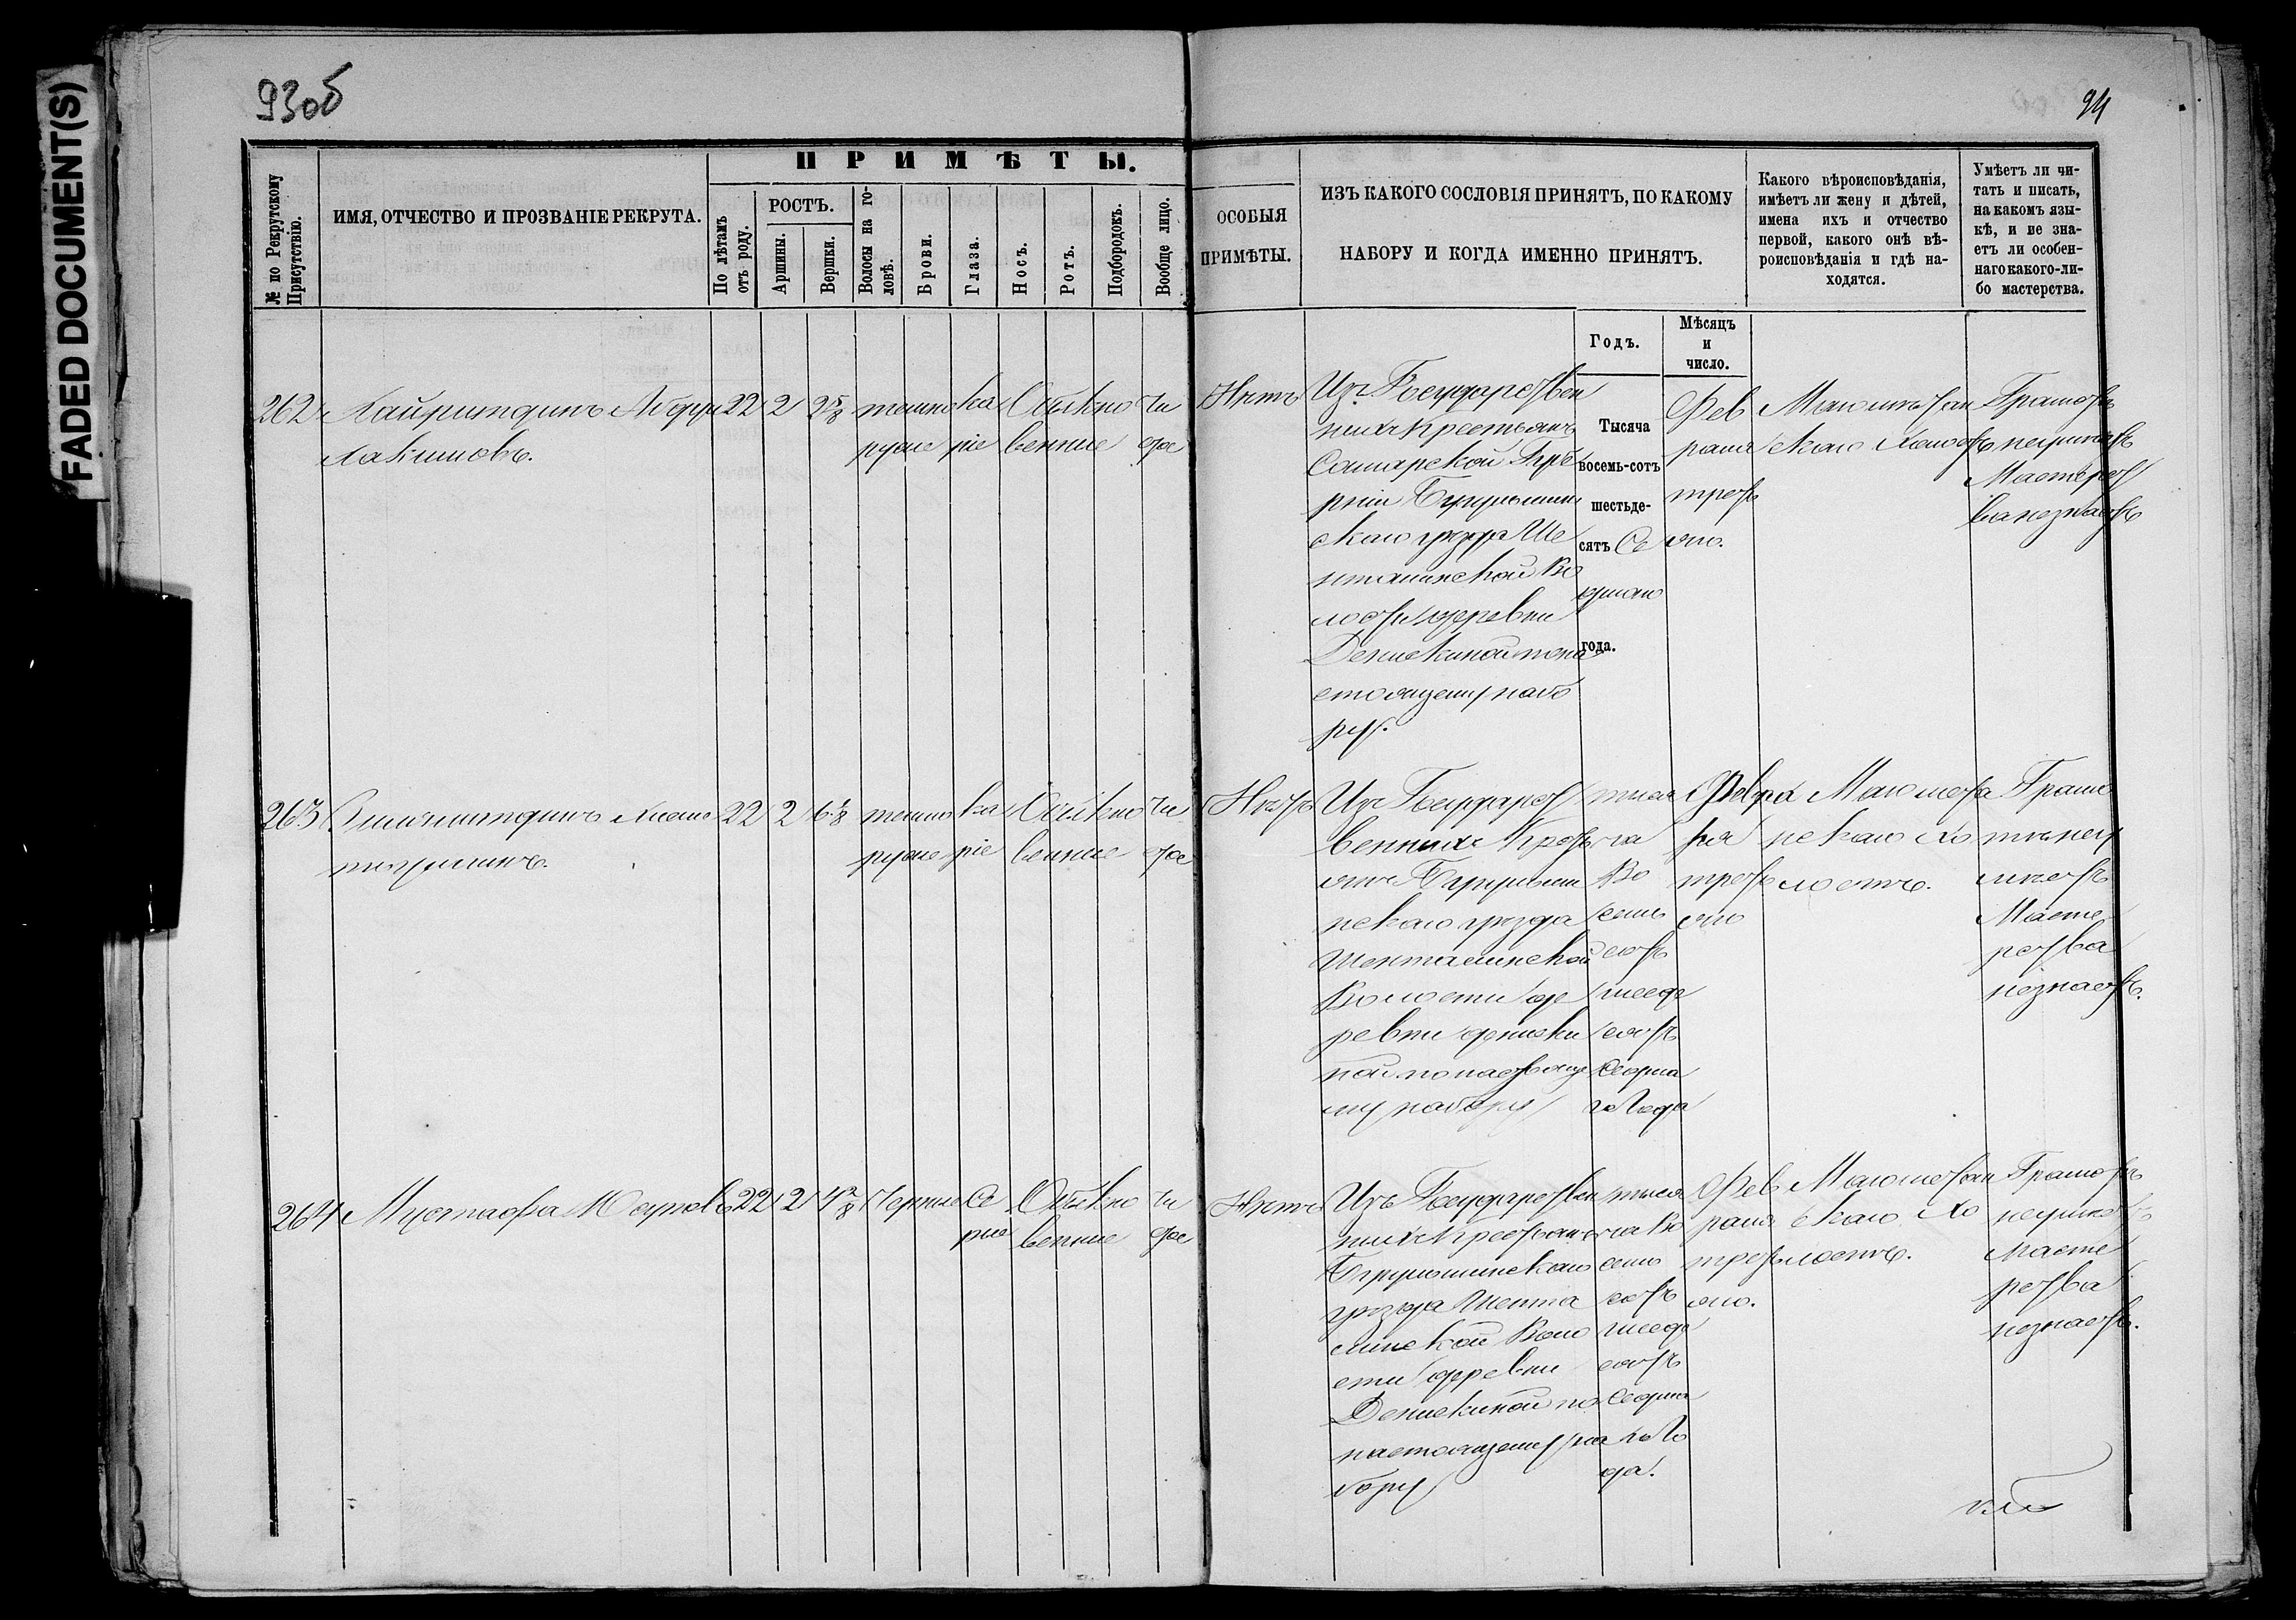 FADED DOCUMENT(S)
93об
94
ПРИМѢТЫ.
№ по Рекрутскому
Присутствію.
ИМЯ, ОТЧЕСТВО И ПРОЗВАНІЕ РЕКРУТА.
По лѣтамъ
отъ роду.
РОСТЪ.
Аршины.
Вершки.
Волосы на го-
ловѣ.
Брови.
Глаза.
Носъ.
Ротъ.
Подбородокъ.
Вообще лицо.
ОСОБЫЯ
ПРИМѢТЫ.
ИЗЪ КАКОГО СОСЛОВІЯ ПРИНЯТЪ, ПО КАКОМУ
НАБОРУ И КОГДА ИМЕННО ПРИНЯТЪ.
Какого вѣроисповѣданія,
имѣетъ ли жену и дѣтей,
имена ихъ и отчество
первой, какого онѣ вѣ-
роисповѣданія и гдѣ на-
ходятся.
Умѣетъ ли чи-
тать и писать,
на какомъ язы-
кѣ, и не зна-
етъ ли особен-
наго какого-ли-
бо мастерства.
Годъ.
Мѣсяцъ
и
число.
262
Хайритдинъ
Хакимовъ.
22
2
2 5/8
темно
русые
ка
ріе
Обыкно
венные
чи
стое
Нѣтъ
Изъ Государствен
ныхъ Крестьянъ
Самарской Губе
рніи Бугульмин
скаго уѣзда Ше
нталинской Во
лости деревни
Денискиной по на
стоящему набо
ру.
Тысяча
восемь-сотъ
шестьде-
сятъ Се
дьмаго
года.
Фев
раля
треть
яго.
Магометан
скаго Холостъ
Грамотѣ
неумѣетъ
Мастерст
ва незнаетъ
263
22
2
6 1/8
темно
русые
ка
ріе
Обыкно
венные
чи
стое
Нѣтъ
Изъ Государст
венныхъ Кресть
янъ Бугульми
нскаго уѣзда
Шенталинской
Волости де
ревни Дениски
ной по настояще
му набору
тыся
ча
Во
семь
сотъ
шесть
сятъ
Седьма
го Года
Февра
ля
треть
яго
Магомета
нскаго Хо
лостъ.
Грамо
тѣ неу
мѣетъ
Масте
рства
незнаетъ.
264
Мустафа Юсуповъ
22
2
4 7/8
Черные
Сѣ
рые
Обыкно
венные
чи
стое
Нѣтъ
Изъ Государствен
ныхъ Крестьянъ
Бугульминскаго
уѣзда Шента
линской Воло
сти деревни
Денискиной по
настоящему на
бору
тыся
ча Во
семь
сотъ
шесть
сятъ
Седьма
го Го
да.
Фев
раля
треть
яго.
Магометан
скаго Хо
лостъ.
Грамотѣ
неумѣетъ
Масте
рства
незнаетъ.